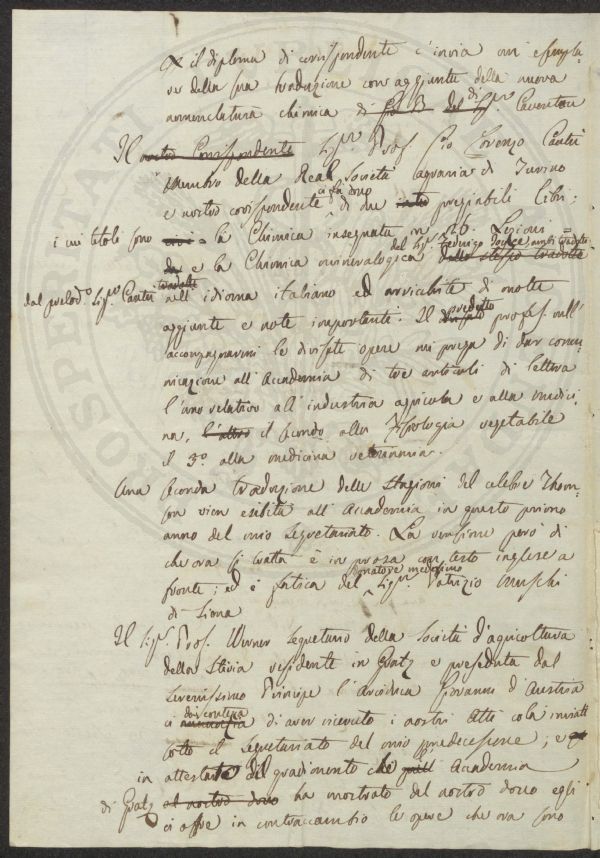 il diploma di corrispondente c'invia un esempla-
re della sua traduzione con aggiunte della nuova
nomenclatura chimica di del Sigr. Caventou
Il nostro Corrispondente Sigr. Prof. Gio Lorenzo Cantù
Membro della Real Società agraria di Torino
e nostro corrispondente ci fa dono di due pregiabili libri;
i cui titoli sono la Chimica insegnata in 26. Lezioni
e la Chimica mineralogica del Sigr. dallo stesso tradotte
dal prelod.o Sigr. Cantù tradotte all'idioma italiano ed arricchite di molte
aggiunte e note importante. Il predetto profess. nell'
accompagnarmi le divisate opere mi prega di dar comu-
nicazione all'Accademia di tre articoli di lettera
l'uno relativo all'industria agricola e alla medici-
na, l'altro il secondo alla Fisiologia vegetabile
il 3.o alla medicina veterinaria.
Una seconda traduzione delle stagioni del celebre Thom-
son vien esibita all'Accademia in questo primo
anno del mio segretariato. La versione però di
che ora si tratta è in prosa con testo inglese a
fronte; ed è fatica del Sigr. Patrizio Muschi
di Siena
Il Sigr. Prof. Werner segretario della Società d'agricoltura
della Stiria residente in Gratz e preseduta dal
serenissimo Principe l'Arciduca Giovanni d'Austria
ci dà contezza di aver ricevuto i nostri Atti colà inviati
sotto il segretariato del mio predecessore; e
in attestato del gradimento che Accademia
di Gratz ha mostrato del nostro dono egli
ci offre in contraccambio le opere che ora sono